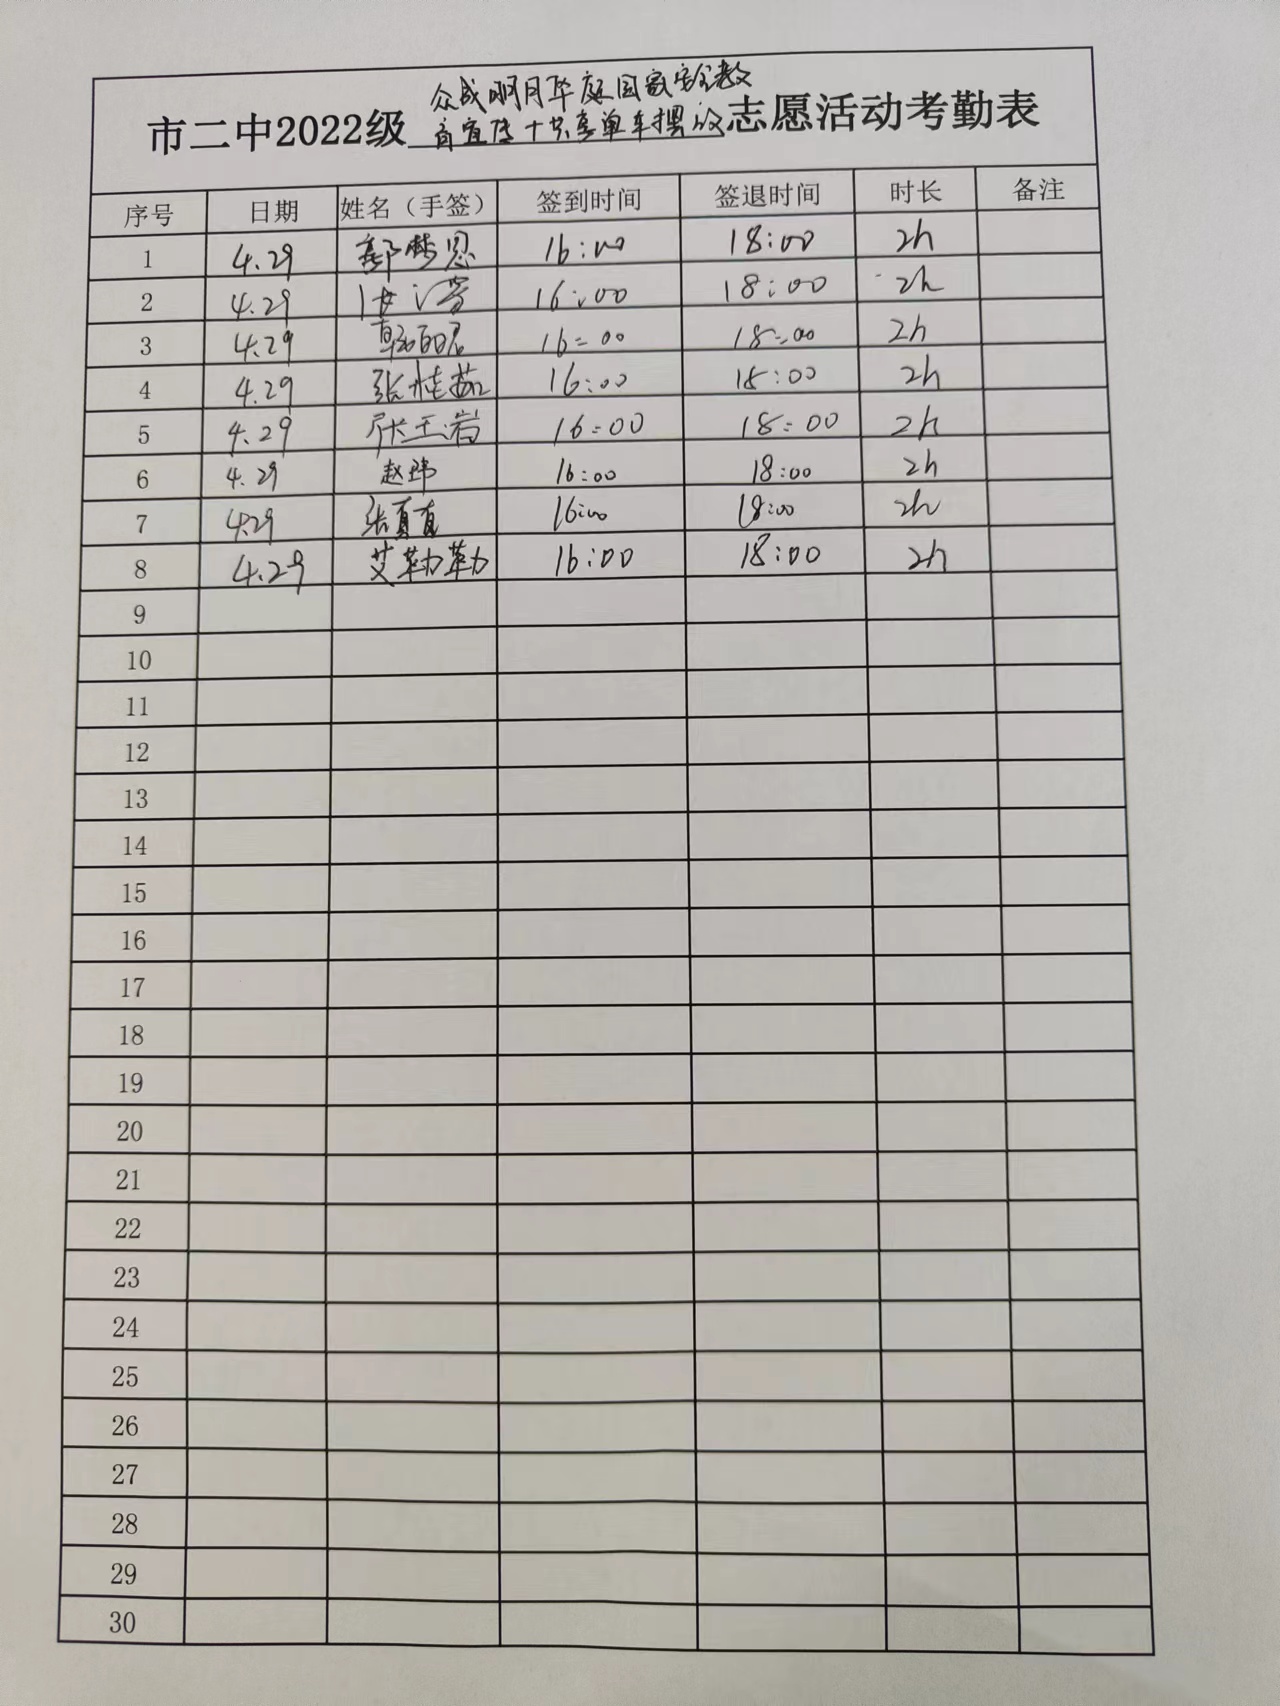 众成明月华庭国家安全教
市二中2022级育宣传+共享单车摆放志愿活动考勤表
序号 日期 姓名（手签） 签到时间 签退时间 时长 备注
1 4.29 郭梦恩 16:00 18:00 2h
2 4.29 16:00 18:00 2h
3 4.29 16:00 18:00 2h
4 4.29 张桂茹 16:00 18:00 2h
5 4.29 张玉岩 16:00 18:00 2h
6 4.29 赵玮 16:00 18:00 2h
7 4.29 张真真 16:00 18:00 2h
8 4.29 艾勒勒 16:00 18:00 2h
9
10
11
12
13
14
15
16
17
18
19
20
21
22
23
24
25
26
27
28
29
30